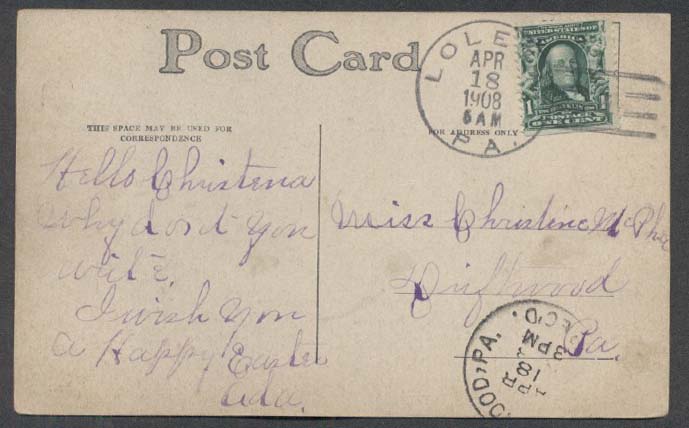 Post Card
THIS SPACE MAY BE USED FOR
CORRESPONDENCE
FOR ADDRESS ONLY
LOLE
APR
18
1908
6 AM
PA.
UNITED STATES OF AMERICA
1 FRANKLIN 1
POSTAGE
ONE CENT
Hello Christena
why dont you
write.
I wish you
a Happy Easter
Ada.
Miss Christine McPhee
Driftwood
Pa.
OOD, PA.
APR
18
3 PM
EC'D.